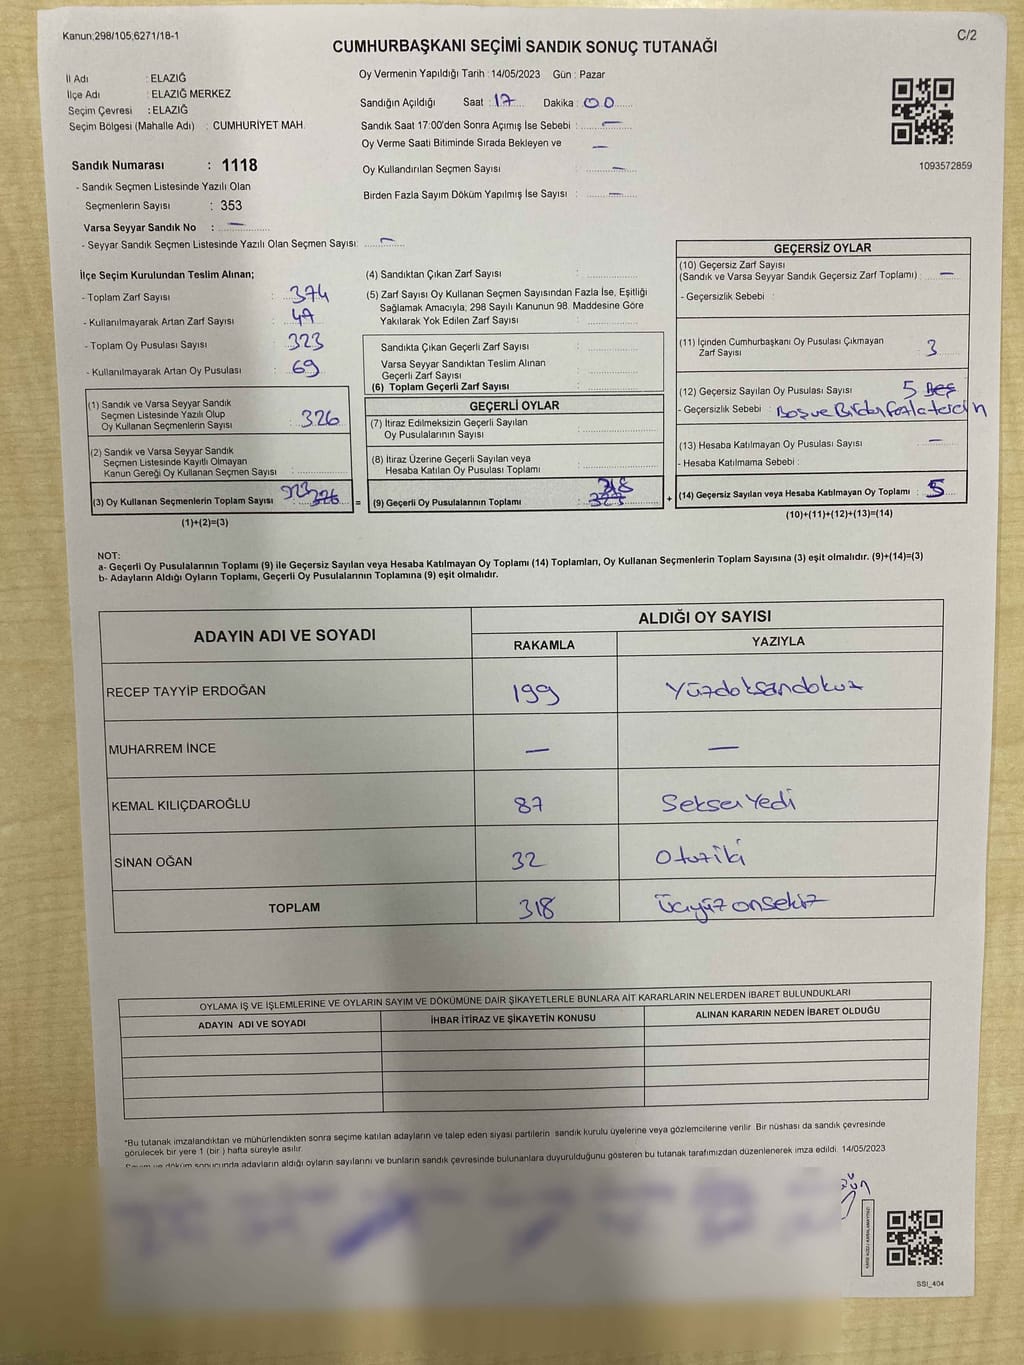 Kanun;298/105,6271/18-1
C/2
CUMHURBAŞKANI SEÇİMİ SANDIK SONUÇ TUTANAĞI
İl Adı : ELAZIĞ
İlçe Adı : ELAZIĞ MERKEZ
Seçim Çevresi : ELAZIĞ
Seçim Bölgesi (Mahalle Adı) : CUMHURİYET MAH.
Oy Vermenin Yapıldığı Tarih : 14/05/2023 Gün : Pazar
Sandığın Açıldığı Saat : 17 Dakika : 00
Sandık Saat 17:00'den Sonra Açımış İse Sebebi : —
Oy Verme Saati Bitiminde Sırada Bekleyen ve —
Oy Kullandırılan Seçmen Sayısı : —
Birden Fazla Sayım Döküm Yapılmış İse Sayısı : —
1093572859
Sandık Numarası : 1118
- Sandık Seçmen Listesinde Yazılı Olan
Seçmenlerin Sayısı : 353
Varsa Seyyar Sandık No : —
- Seyyar Sandık Seçmen Listesinde Yazılı Olan Seçmen Sayısı: —
İlçe Seçim Kurulundan Teslim Alınan;
- Toplam Zarf Sayısı : 374
- Kullanılmayarak Artan Zarf Sayısı :
- Toplam Oy Pusulası Sayısı : 323
- Kullanılmayarak Artan Oy Pusulası : 69
(1) Sandık ve Varsa Seyyar Sandık
Seçmen Listesinde Yazılı Olup
Oy Kullanan Seçmenlerin Sayısı : 326
(2) Sandık ve Varsa Seyyar Sandık
Seçmen Listesinde Kayıtlı Olmayan
Kanun Gereği Oy Kullanan Seçmen Sayısı :
(3) Oy Kullanan Seçmenlerin Toplam Sayısı : 323 326 =
(1)+(2)=(3)
(4) Sandıktan Çıkan Zarf Sayısı :
(5) Zarf Sayısı Oy Kullanan Seçmen Sayısından Fazla İse, Eşitliği
Sağlamak Amacıyla; 298 Sayılı Kanunun 98. Maddesine Göre
Yakılarak Yok Edilen Zarf Sayısı :
Sandıkta Çıkan Geçerli Zarf Sayısı :
Varsa Seyyar Sandıktan Teslim Alınan
Geçerli Zarf Sayısı :
(6) Toplam Geçerli Zarf Sayısı :
GEÇERLİ OYLAR
(7) İtiraz Edilmeksizin Geçerli Sayılan
Oy Pusulalarının Sayısı :
(8) İtiraz Üzerine Geçerli Sayılan veya
Hesaba Katılan Oy Pusulası Toplamı :
(9) Geçerli Oy Pusulalarının Toplamı : 318 +
GEÇERSİZ OYLAR
(10) Geçersiz Zarf Sayısı
(Sandık ve Varsa Seyyar Sandık Geçersiz Zarf Toplamı) : —
- Geçersizlik Sebebi :
(11) İçinden Cumhurbaşkanı Oy Pusulası Çıkmayan
Zarf Sayısı : 3
(12) Geçersiz Sayılan Oy Pusulası Sayısı : 5 Beş
- Geçersizlik Sebebi : Boş ve Birden fazla tercih
(13) Hesaba Katılmayan Oy Pusulası Sayısı : —
- Hesaba Katılmama Sebebi :
(14) Geçersiz Sayılan veya Hesaba Katılmayan Oy Toplamı : 5
(10)+(11)+(12)+(13)=(14)
NOT:
a- Geçerli Oy Pusulalarının Toplamı (9) ile Geçersiz Sayılan veya Hesaba Katılmayan Oy Toplamı (14) Toplamları, Oy Kullanan Seçmenlerin Toplam Sayısına (3) eşit olmalıdır. (9)+(14)=(3)
b- Adayların Aldığı Oyların Toplamı, Geçerli Oy Pusulalarının Toplamına (9) eşit olmalıdır.
ADAYIN ADI VE SOYADI
ALDIĞI OY SAYISI
RAKAMLA YAZIYLA
RECEP TAYYİP ERDOĞAN 199 Yüzdoksandokuz
MUHARREM İNCE — —
KEMAL KILIÇDAROĞLU 87 SeksenYedi
SİNAN OĞAN 32 Otuziki
TOPLAM 318 Üçyüzonsekiz
OYLAMA İŞ VE İŞLEMLERİNE VE OYLARIN SAYIM VE DÖKÜMÜNE DAİR ŞİKAYETLERLE BUNLARA AİT KARARLARIN NELERDEN İBARET BULUNDUKLARI
ADAYIN ADI VE SOYADI İHBAR İTİRAZ VE ŞİKAYETİN KONUSU ALINAN KARARIN NEDEN İBARET OLDUĞU
*Bu tutanak imzalandıktan ve mühürlendikten sonra seçime katılan adayların ve talep eden siyasi partilerin sandık kurulu üyelerine veya gözlemcilerine verilir. Bir nüshası da sandık çevresinde
görülecek bir yere 1 (bir ) hafta süreyle asılır.
Sayım ve döküm sonucunda adayların aldığı oyların sayılarını ve bunların sandık çevresinde bulunanlara duyurulduğunu gösteren bu tutanak tarafımızdan düzenlenerek imza edildi. 14/05/2023
SSI_404